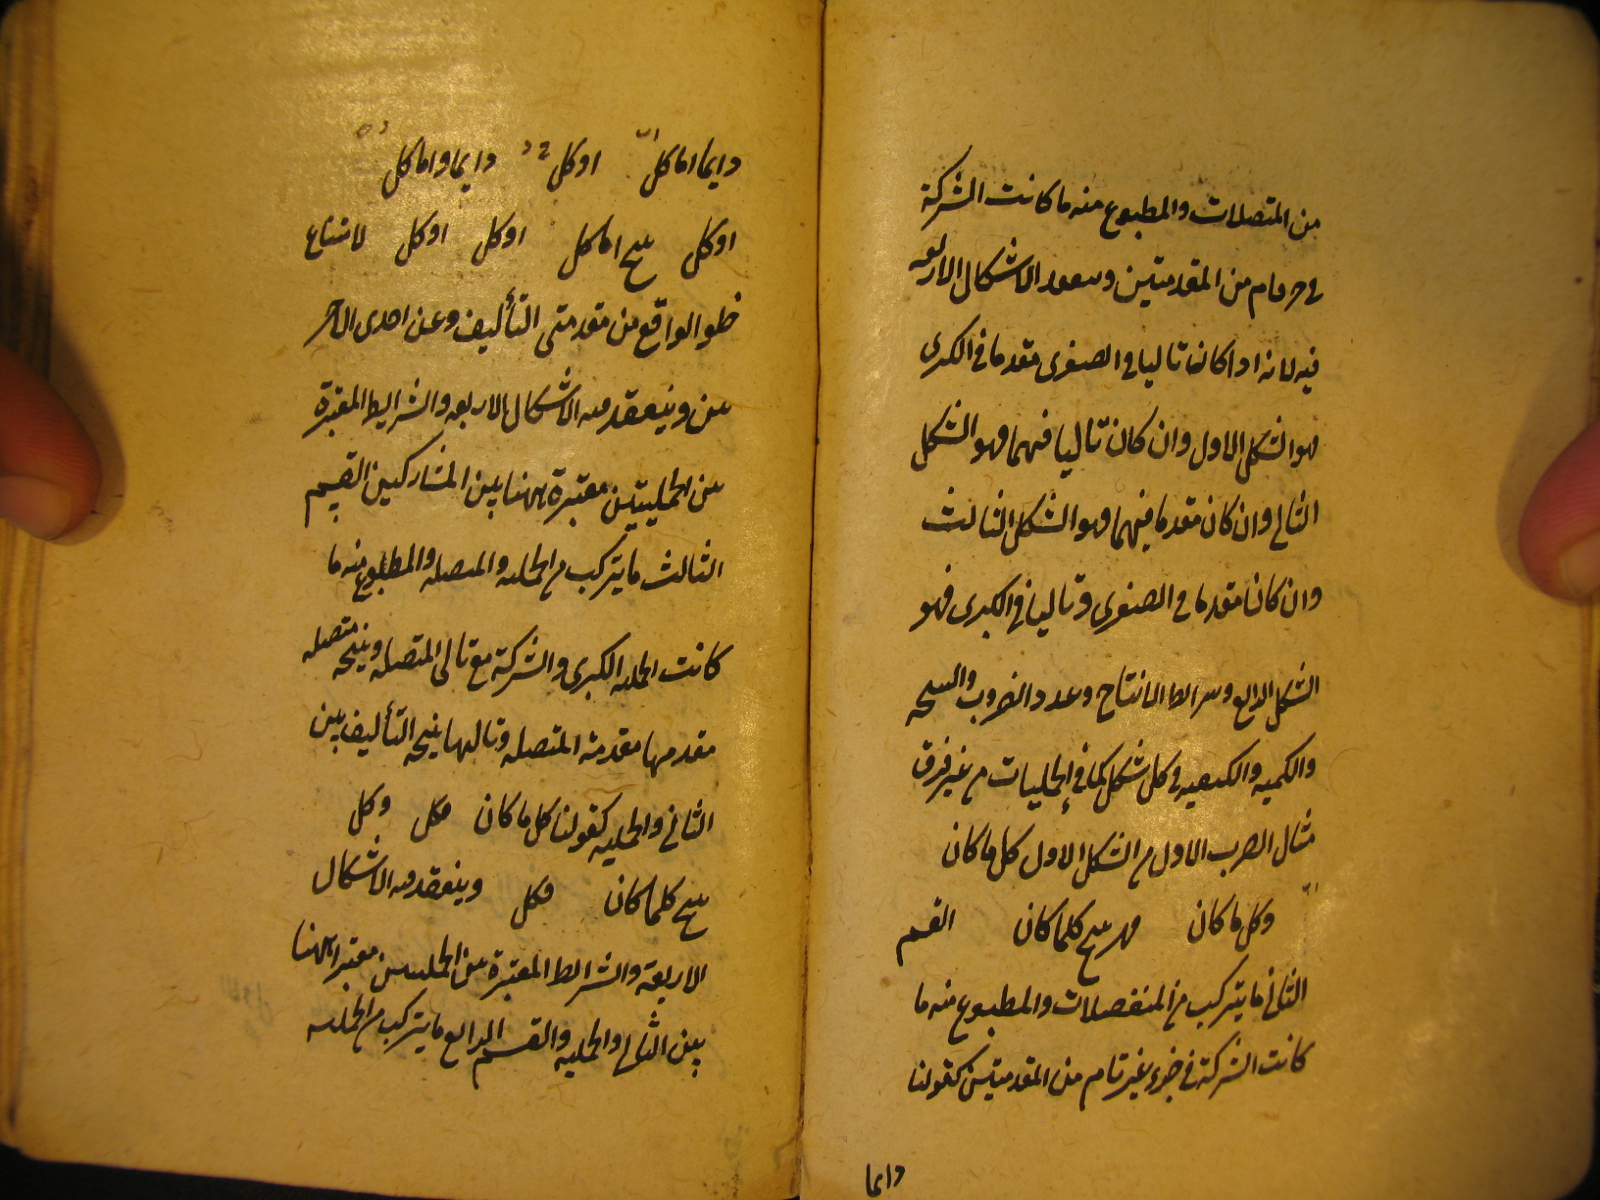 من المتصلات والمطبوع منه ما كانت الشركة
في جزء تام من المقدمتين وينعقد الاشكال الاربعه
فيه لانه اذا كان تاليا في الصغرى مقدما في الكبرى
فهو الشكل الاول وان كان تاليا فيهما فهو الشكل
الثاني وان كان مقدما فيهما فهو الشكل الثالث
وان كان مقدما في الصغرى وتاليا في الكبرى فهو
الشكل الرابع وشرايط الانتاج وعدد الضروب والنتيجه
والكميه والكيفيه في كل شكل كما في الحمليات من غير فرق
مثال الضرب الاول من الشكل الاول كل ما كان
وكل ما كان فهر ينتج كلما كان القسم
الثاني ما يتركب من المنفصلات والمطبوع منه ما
كانت الشركة في جزء غير تام من المقدمتين كقولنا
دايما
دايما اما كل اوكل دايما واما كل
اوكل ينتج اما كل اوكل اوكل لامتناع
خلو الواقع من مقدمتي التأليف وعن احدى الاخر
ين وينعقد فيه الاشكال الاربعه والشرايط المعتبرة
بين الحمليتين معتبرة ههنا بين المتشاركين القسم
الثالث ما يتركب من الحمليه والمتصله والمطبوع منه ما
كانت الحمليه الكبرى والشركة مع تالى المتصله ونتيجته متصله
مقدمها مقدمة المتصله وتاليها نتيجه التأليف بين
التالي والحمليه كقولنا كل ما كان فكل وكل
ينتج كلما كان فكل وينعقد فيه الاشكال
الاربعة والشرايط المعتبرة بين الحمليتين معتبرة ههنا
بين التالي والحمليه والقسم الرابع ما يتركب من الحمليه